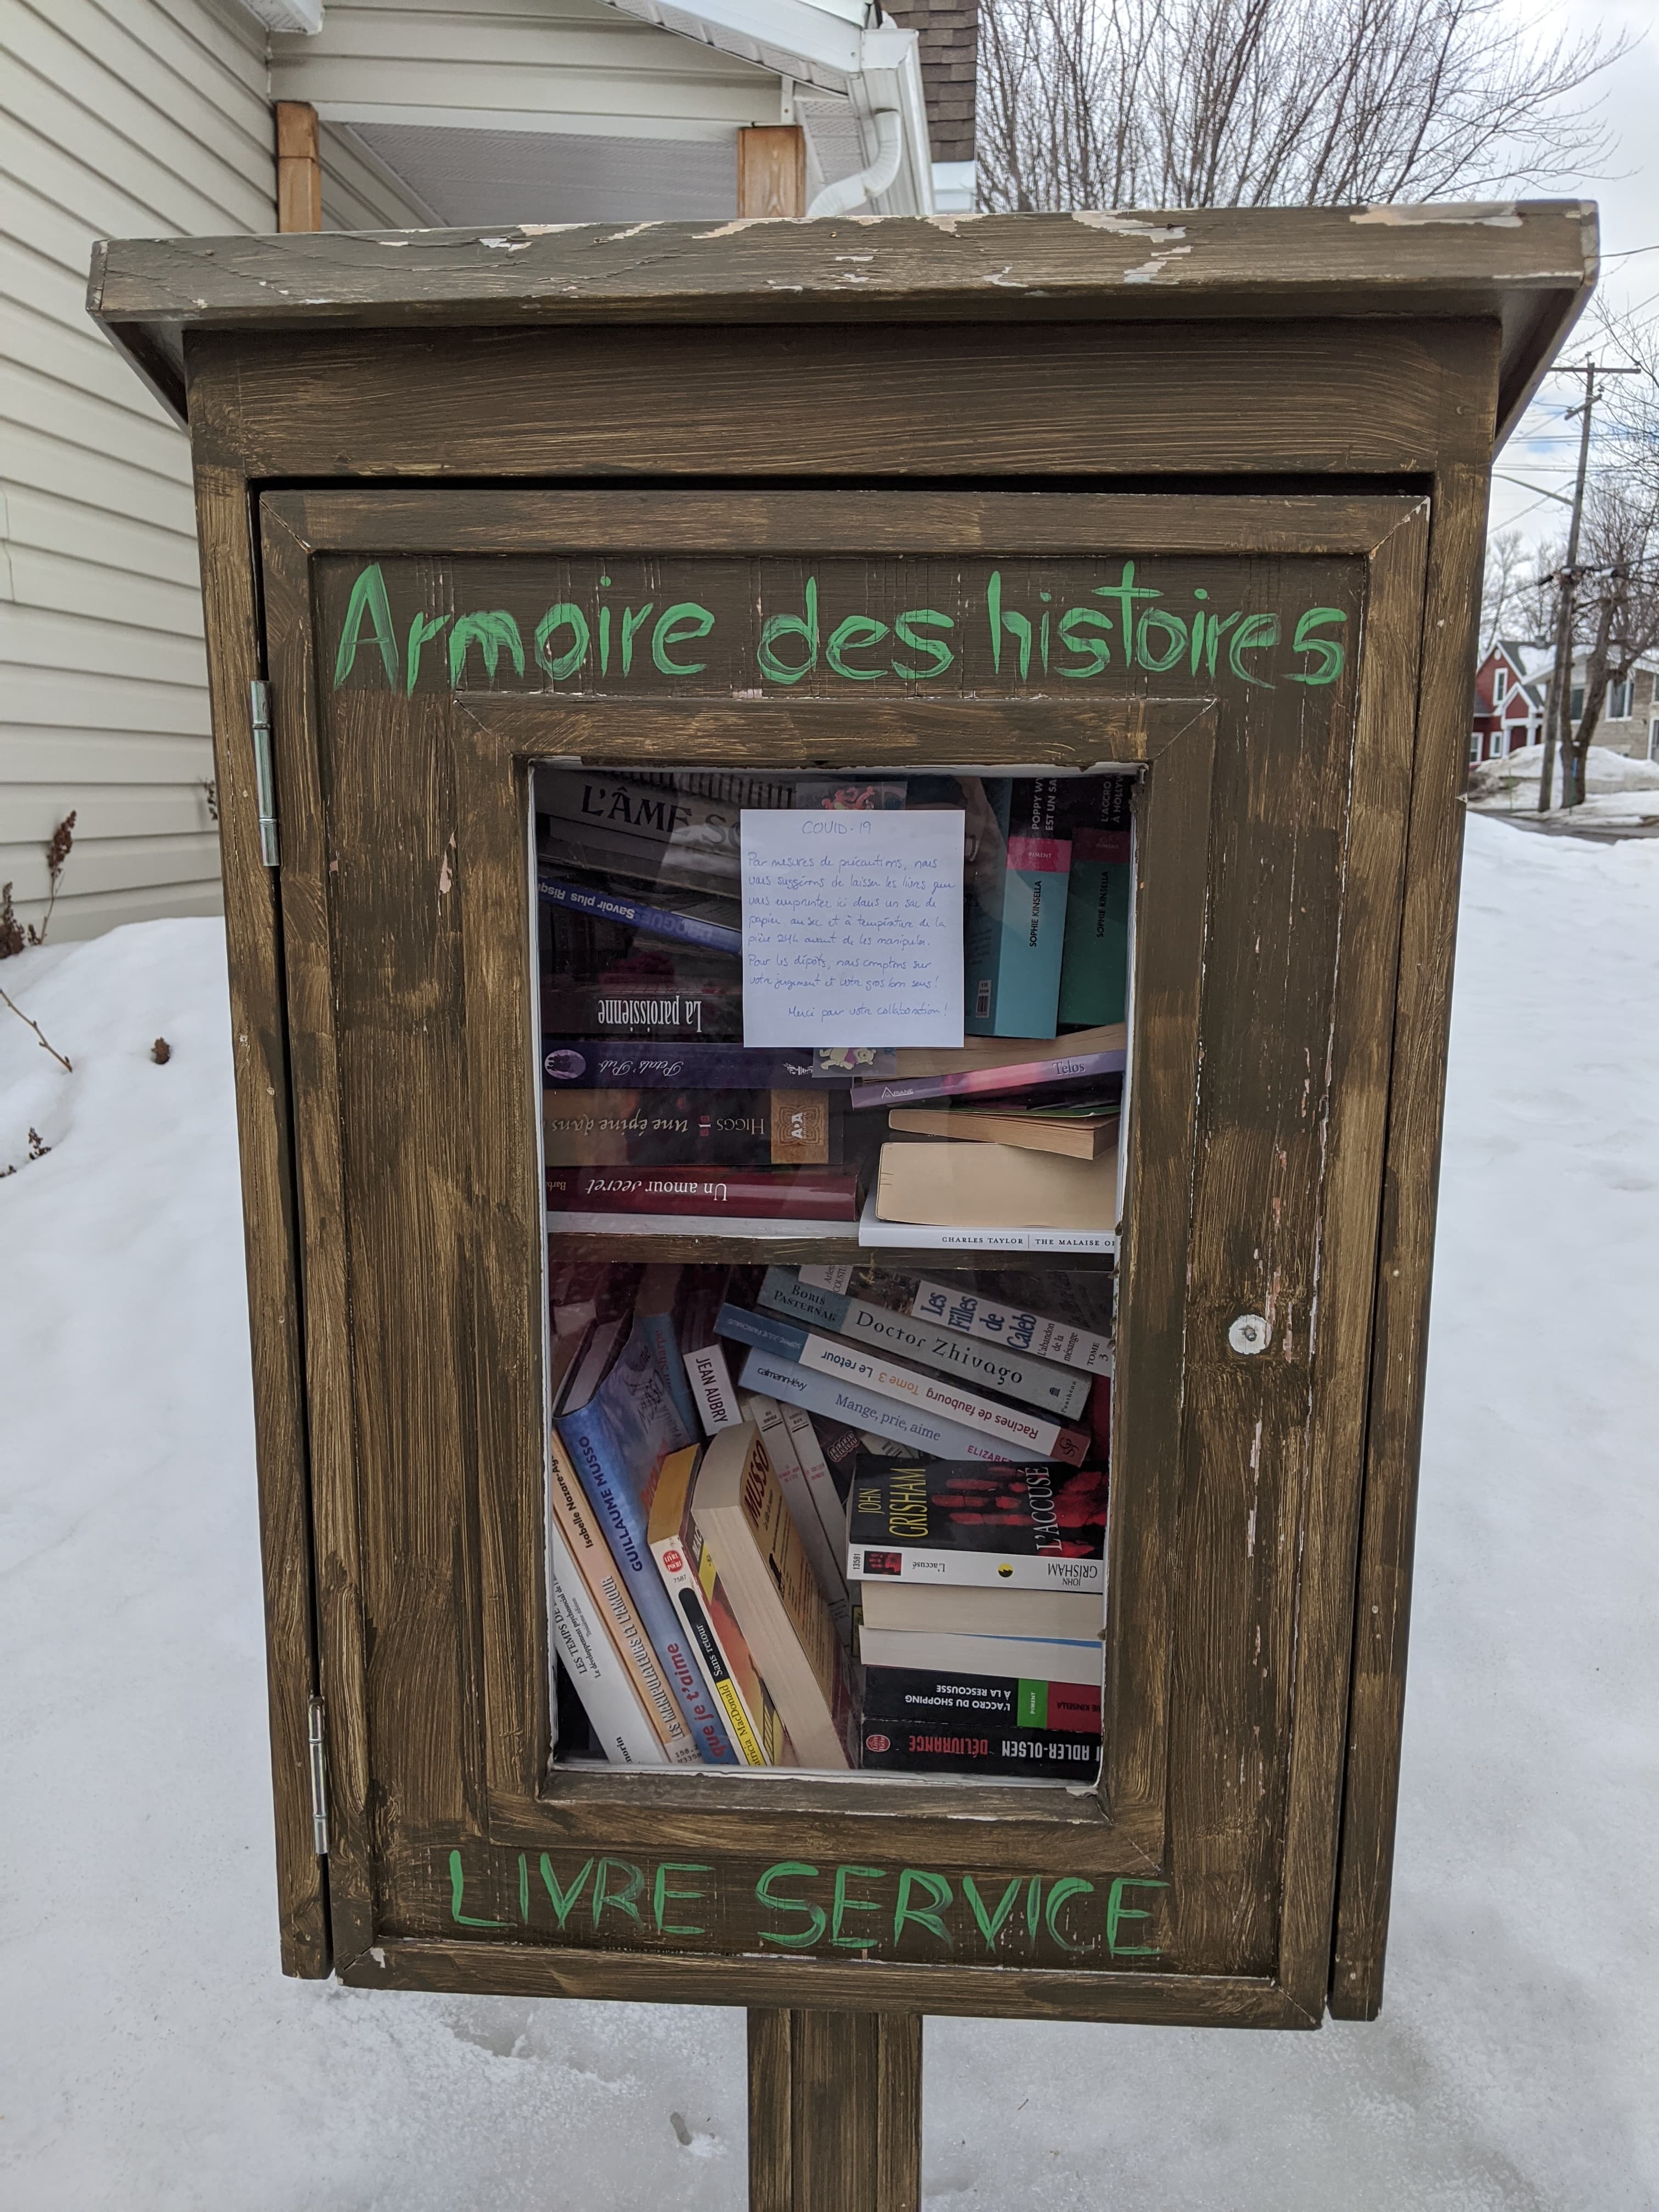 Armoire des histoires
L'ÂME
COVID-19
Par mesures de précautions, nous
vous suggérons de laisser les livres que
vous empruntez ici dans un sac de
papier au sec et à température de la
pièce 24h avant de les manipuler.
Pour les dépôts, nous comptons sur
votre jugement et votre gros bon sens!
Merci pour votre collaboration!
POPPY
EST UN
PIMENT
SOPHIE KINSELLA
L'ACCRO
À HOLLY
SOPHIE KINSELLA
Savoir plus
La paroissienne
Petals' Pub
Telos
HIGGS Une épine dans
ADA
Un amour secret
CHARLES TAYLOR THE MALAISE
BORIS PASTERNAK Doctor Zhivago Pantheon
Les Filles de Caleb
L'abandon de la mésange
TOME 3
Racines de faubourg Tome 3 Le retour
calmann-lévy Mange, prie, aime
JEAN AUBRY
MUSSO
JOHN GRISHAM
L'ACCUSÉ
13581 L'accusé JOHN GRISHAM
LES TEMPS DE
Le développement psychosocial de
Isabelle Nazare-
LES MANIPULATEURS ET L'AMOUR
GUILLAUME MUSSO
que je t'aime
7587
Patricia MacDonald Sans retour
L'ACCRO DU SHOPPING
À LA RESCOUSSE
PIMENT
KINSELLA
ADLER-OLSEN DÉLIVRANCE
LIVRE SERVICE